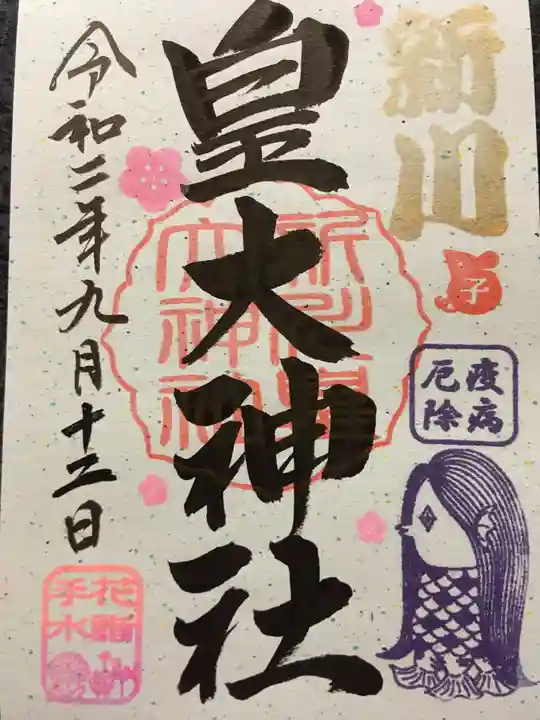 新川
子
疫病
厄除
皇大神社
新川皇
大神社
令和二年九月十三日
花詣
手水